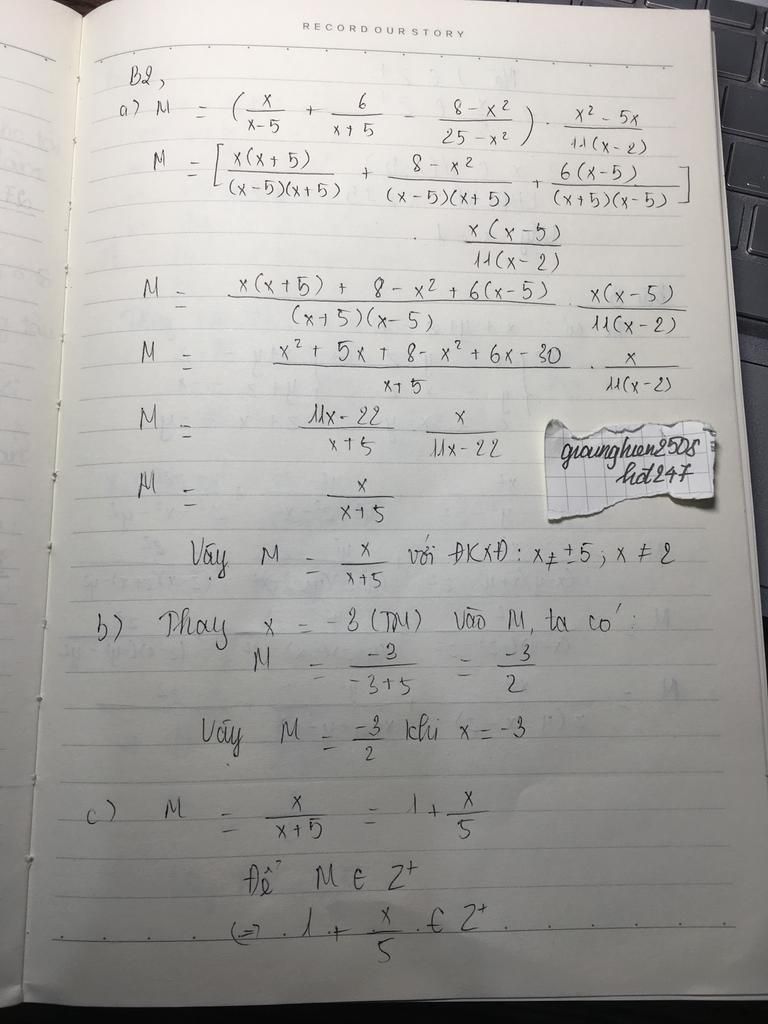 RECORD OUR STORY
B2,
a) M = (x/(x-5) + 6/(x+5) - (8-x²)/(25-x²)) . (x²-5x)/(11(x-2))
M = [x(x+5)/((x-5)(x+5)) + (8-x²)/((x-5)(x+5)) + 6(x-5)/((x+5)(x-5))]
. x(x-5)/(11(x-2))
M = (x(x+5) + 8-x² + 6(x-5))/((x+5)(x-5)) . x(x-5)/(11(x-2))
M = (x² + 5x + 8-x² + 6x-30)/(x+5) . x/(11(x-2))
M = (11x-22)/(x+5) x/(11x-22)
M = x/(x+5)
giaunghien2508
hd247
Vậy M = x/(x+5) với ĐKXĐ: x≠±5; x ≠ 2
b) Thay x = -3 (TM) vào M, ta có:
M = -3/(-3+5) = -3/2
Vậy M = -3/2 khi x = -3
c) M = x/(x+5) = 1 + x/5
Để M ∈ Z⁺
(=> 1 + x/5 ∈ Z⁺